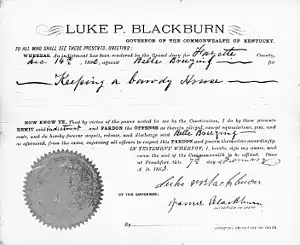 LUKE P. BLACKBURN
GOVERNOR OF THE COMMONWEALTH OF KENTUCKY.
TO ALL WHO SHALL SEE THESE PRESENTS, GREETING:
WHEREAS, An indictment has been rendered by the Grand Jury for Fayette County,
Dec 14th, 1882, against Belle Brezing for
Keeping a bawdy House
NOW KNOW YE, That by virtue of the power vested in me by the Constitution, I do by these presents
REMIT said indictment and PARDON the OFFENSE as therein alleged,
and do hereby forever acquit, release, and discharge said Belle Brezing
as aforesaid, from the same, enjoining all officers to respect this PARDON and govern themselves accordingly.
IN TESTIMONY WHEREOF, I, hereby, sign my name, and
cause the seal of the Commonwealth to be affixed. Done
at Frankfort, this day of
A. D. 1883.
Luke P Blackburn
BY THE GOVERNOR:
James Blackburn
SECRETARY OF STATE
By
ASSISTANT SECRETARY OF STATE.